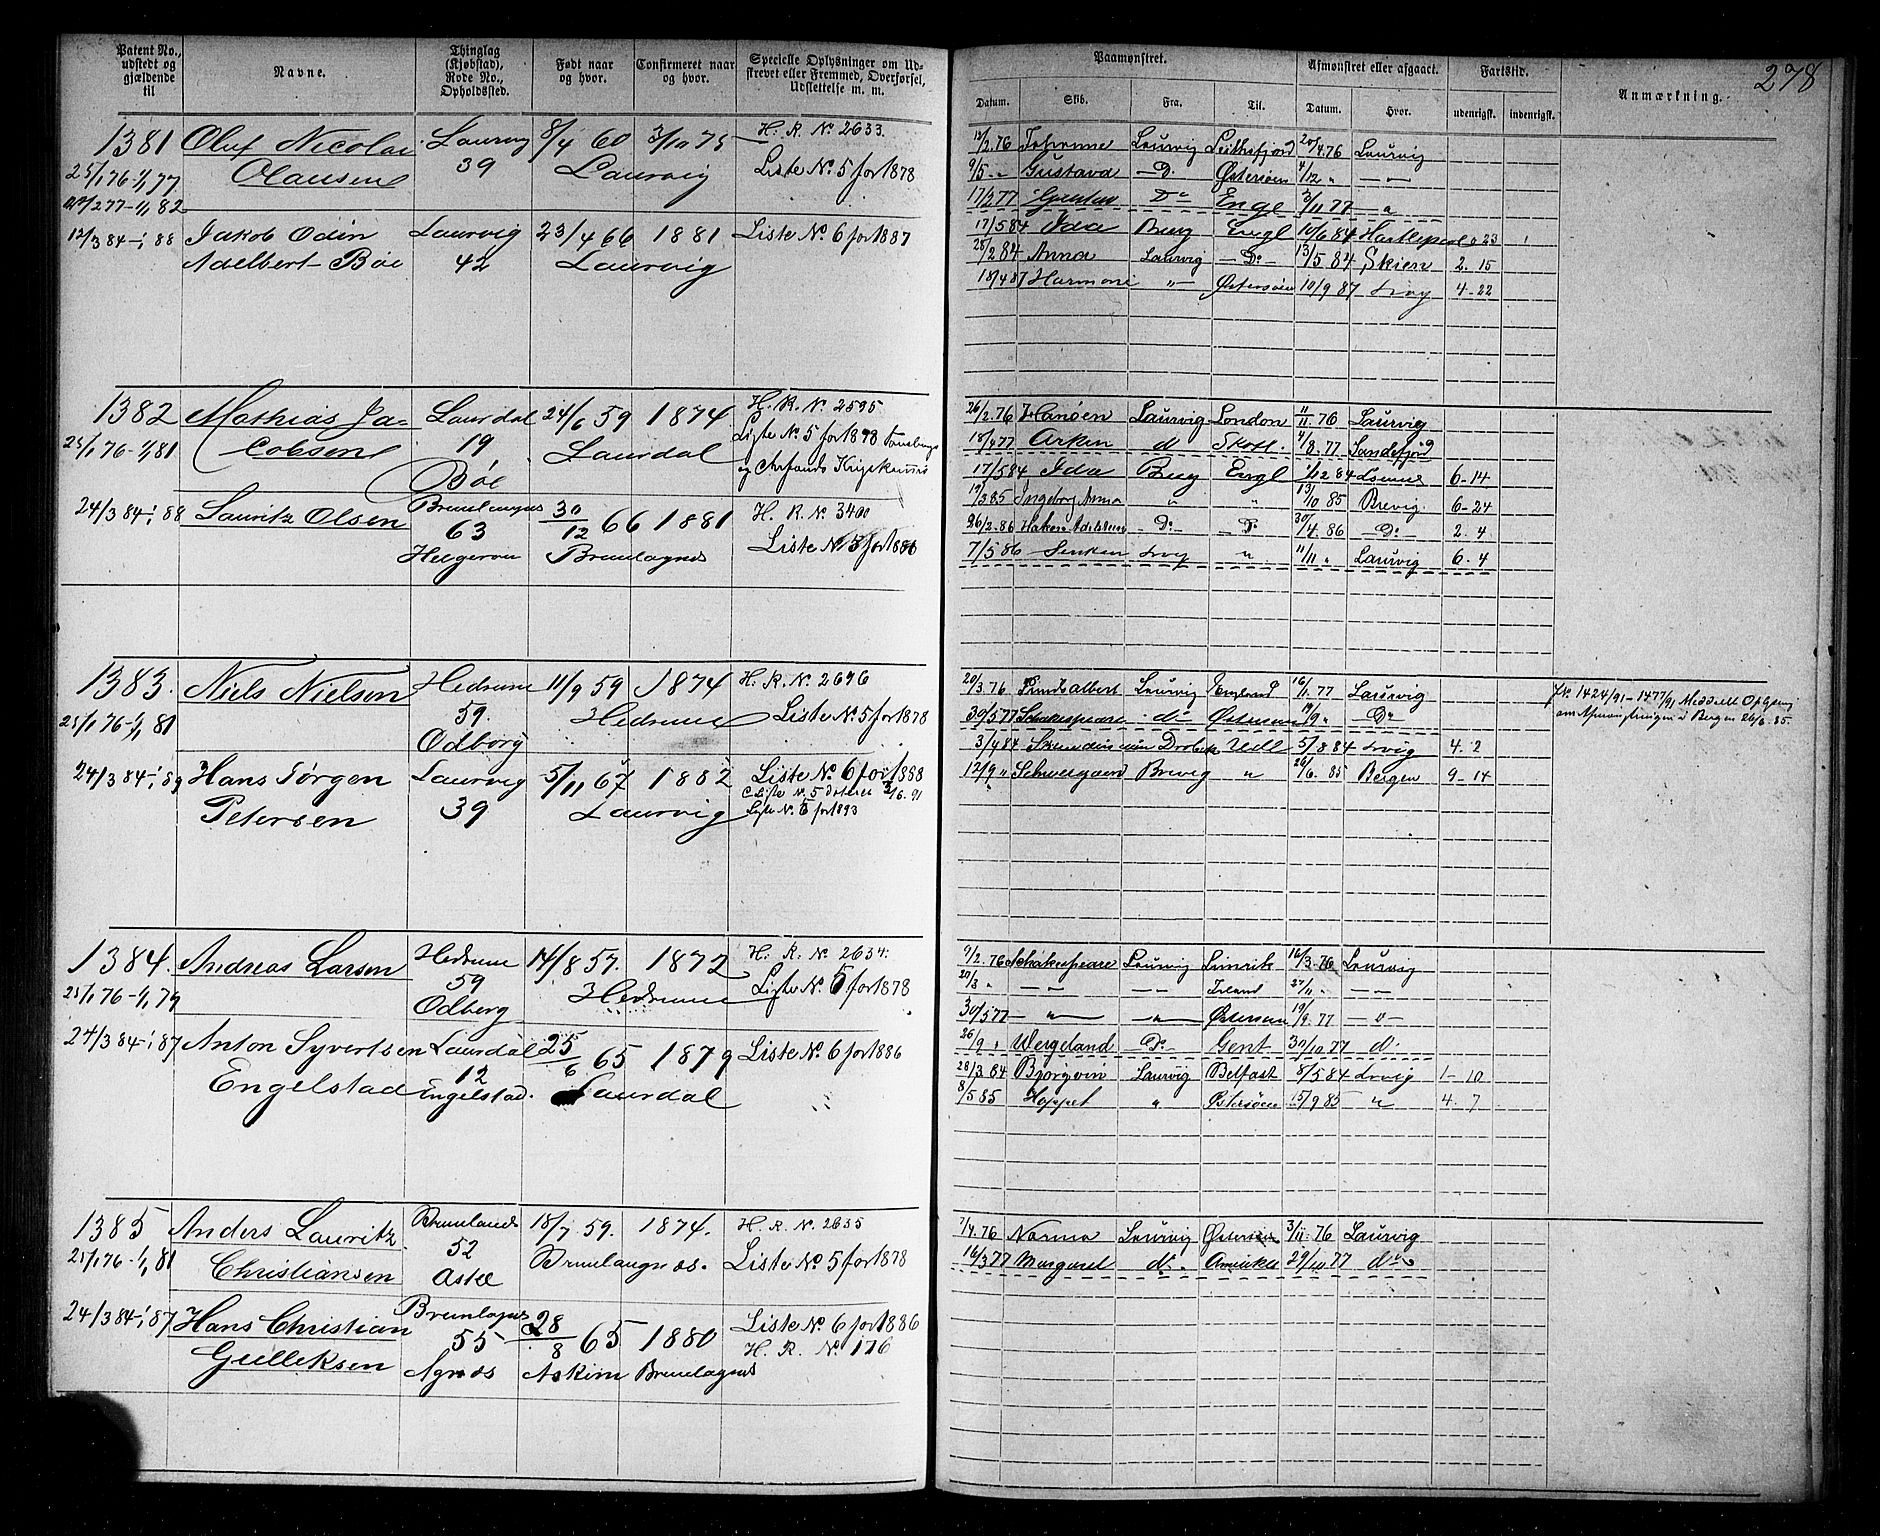 278
Patent No., udstedt og gjældende til
Navne.
Thinglag (Kjøbstad), Rode No., Opholdssted.
Født naar og hvor.
Confirmeret naar og hvor.
Specielle Oplysninger om Udstrevet eller Fremmed, Overførsel, Udslettelse m. m.
Paamønstret.
Afmønstret eller afgaaet.
Fartstid.
Anmærkning.
Datum. Skib. Fra. Til. Datum. Hvor. udenrigst. indenrigst.
1381 Oluf Nicolai Laurvig 8/4 60 3/10 75 H. R. No 2633.
25/1 76 - 1/1 77 Olausen 39 Laurvig Liste No. 5 for 1878
22/2 77 - 1/1 82
12/3 84 - 1/1 88 Jakob Odin Laurvig 23/4 66 1881 Liste No. 6 for 1887
Adelbert Bøe 42 Laurvig
12/2.76 Johanne Laurvig 20/4.76 Laurvig
9/5 - " Gustava - Do. Østersøen 4/12 " - " -
17/2 77 Gustav Do Engl 3/11 77 - "
17/5 84 Ida Burg Engl 10/6 84 Hartlepool 0 23
28/2 84 Anna Laurvig - Do - 13/5 84 Skien 2. 15
18/4 87 Harmoni " - Østersøen 10/9 87 Lrvg 4 - 22
1382 Mathias Ja- Laurdal 24/6 59 1874 H. R. No. 2595
25/1 76 - 1/1 81 cobsen 19 Laurdal Liste No. 5 for 1878
Bøe
24/3 84 - 1/1 88 Lauritz Olsen Brunlangnes 30/12 66 1881 H. R. No 3400
63 Brunlagnes
Helgeroa
26/2.76 Hanøen Laurvig London 11/11.76 Laurvig
18/4 77 Arken d Skotl. 4/8.77 Sandefjord
17/5 84 Ida Burg Engl 1/12 84 6 - 14
19/3 85 Ingeborg Anna " " 13/10 85 Brevig 6 - 24
26/2.86 Hakon Adelsteen - Do - - Do - 30/4.86 - Do - 2. 4
7/5 86 Lrvg " 11/11 " Laurvig 6. 4
1383. Niels Nielsen Hedrum 11/9 59 1874 H. R. No. 2696
25/1 76 - 1/1 81 59. Hedrum Liste No. 5 for 1878
Odberg
24/3 84 - 1/1 89 Hans Jørgen Laurvig 5/11 67 1882 Liste No. 6 for 1888
Petersen 39 Laurvig Liste No. 5 for 1893
20/3.76 Laurvig England 16/11.77 Laurvig
30/5 77 Schakespeare. do Østersøen 19/9 " - Do -
3/4 84 5/8 84 Lrvig 4. 2
12/9 " Schweigaard Brevig " 26/6. 85 Bergen 9 - 14
JNo. 1424/91 - 1477/91 Meddelt Oplysng
om Afmønstringen i Bergen 26/6.85.
1384. Andreas Larsen Hedrum 14/8 57. 1872 H. R. No 2634.
25/1 76 - 1/1 79 59 Hedrum Liste No. 5 for 1878
Odberg
24/3 84 - 1/1 87 Anton Syvertsen Laurdal 25/6 65 1879 Liste No. 6 for 1886
Engelstad 12 Laurdal
Engelstad.
9/2.76 Schakespeare Laurvig Limrik 16/3.76 Laurvig
20/3 " - - - - Irland 27/11 " - -
30/5 77 - " - - " - Østersøen 19/9.77 - " -
26/9 " Wergeland Do. Gent 30/10 77 d.
28/3 84 Bjørgvin Laurvig Belfast 8/5 84 Lrvig 1 - 10
8/5 85 Hoppet " Østersøen 15/9 85 " 4. 7
1385 Anders Lauritz Brunlands 18/7 59. 1874. H. R. No. 2635
25/1 76 - 1/1 81 Christiansen 52 Brunlaugnes. Liste No. 5 for 1878
Askee
24/3 84 - 1/1 87 Hans Christian Brunlagnes 28/8 65 1880 Liste No. 6 for 1886
Gulliksen 55 H. R. No. 176
Agnæs Askim Brunlagnes
7/4.76 Norma Laurvig Østersøen 3/11.76 Laurvig
16/3 77 Margaret do. Amerika 29/10 77 do